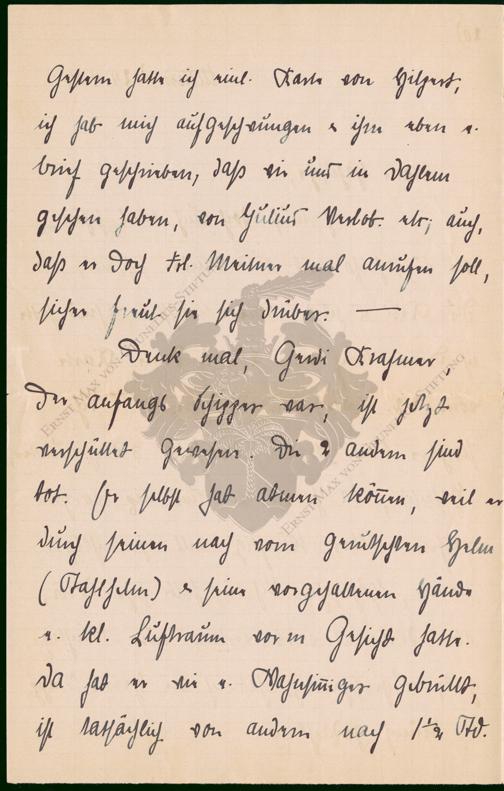 Gestern hatte ich eine Karte von Hilgert,
ich hab mich aufgeschwungen & ihm eben e.
brief geschrieben, daß wir uns in Dahlem
gesehen haben, von Julius Verlob. etc; auch,
daß er doch Frl. Meitner mal anrufen soll,
sicher freut sie sich drüber. —
Denk mal, Gerdi Krahmer,
der anfangs Schipper war, ist jetzt
verschüttet gewesen. Die 2 andern sind
tot. Er selbst hat atmen können, weil er
durch seinen nach vorn gerutschten Helm
(Stahlhelm) & seine vorgehaltenen Hände
e. kl. Luftraum vorm Gesicht hatte.
Da hat er wie e. Wahnsinniger gebrüllt,
ist tatsächlich von andern nach 1½ Std.
ERNST MAX VON GRUNELIUS-STIFTUNG
ERNST MAX VON GRUNELIUS-STIFTUNG